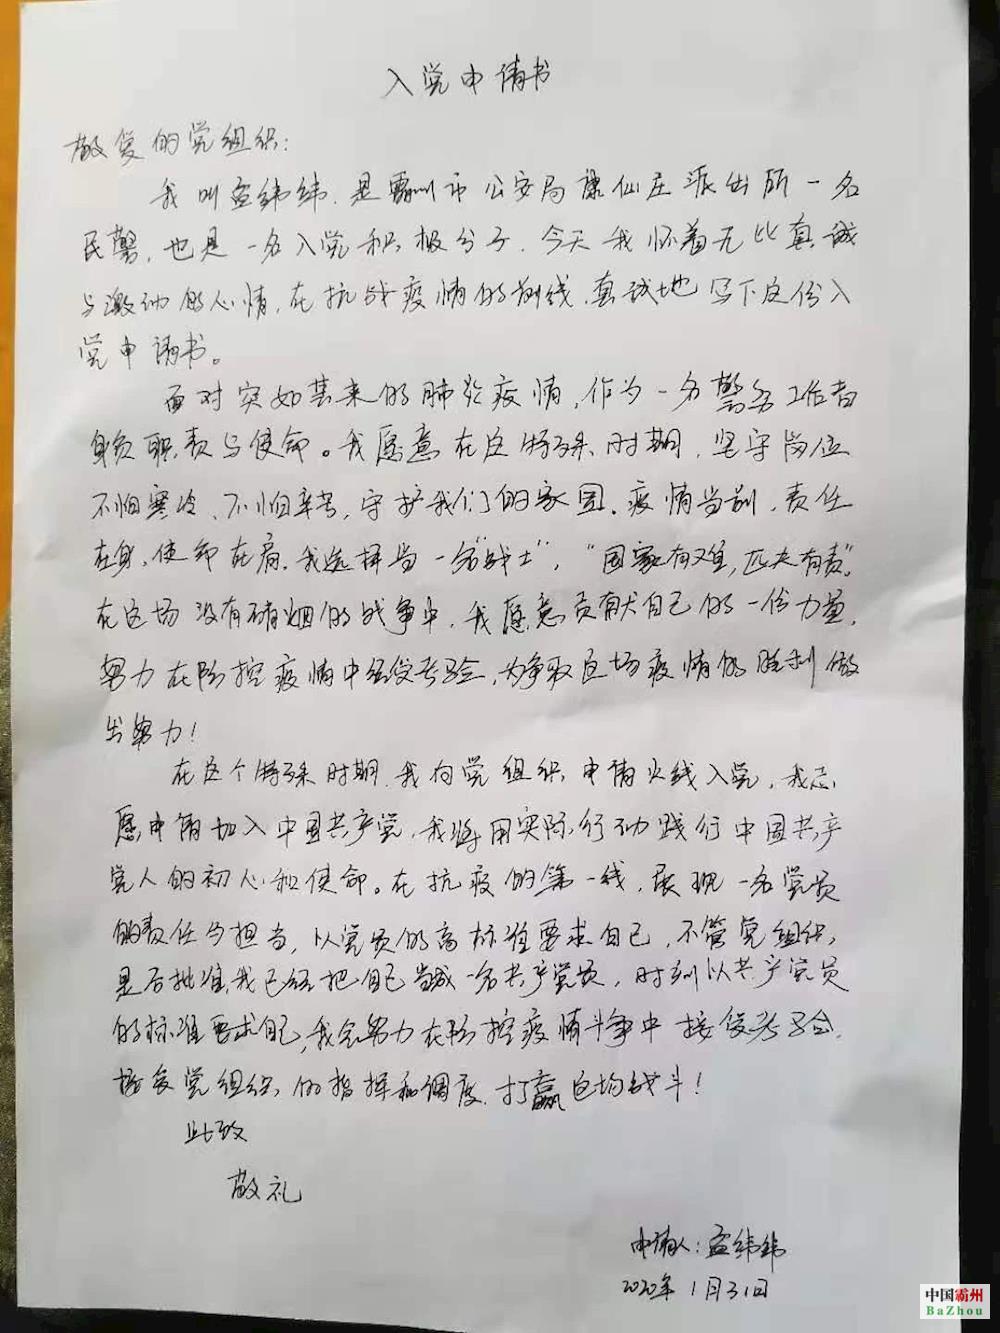 入党申请书
敬爱的党组织：
我叫孟纬纬，是霸州市公安局康仙庄派出所一名
民警，也是一名入党积极分子，今天我怀着无比真诚
与激动的心情，在抗战疫情的前线，真诚地写下这份入
党申请书。
面对突如其来的肺炎疫情，作为一名警务工作者
身负职责与使命。我愿意在这特殊时期，坚守岗位
不怕寒冷、不怕辛苦，守护我们的家园。疫情当前，责任
在身，使命在肩。我选择当一名“战士”，“国家有难，匹夫有责”。
在这场没有硝烟的战争中，我愿意贡献自己的一份力量，
努力在防控疫情中经受考验，为争取这场疫情的胜利做
出努力！
在这个特殊时期，我向党组织申请火线入党，我志
愿申请加入中国共产党，我将用实际行动践行中国共产
党人的初心和使命。在抗疫的第一线，展现一名党员
的责任与担当，以党员的高标准要求自己，不管党组织，
是否批准，我已经把自己当成一名共产党员，时刻以共产党员
的标准要求自己，我会努力在防控疫情斗争中接受考验，
接受党组织的指挥和调度，打赢这场战斗！
此致
敬礼
申请人：孟纬纬
2020年1月31日
中国霸州
BaZhou